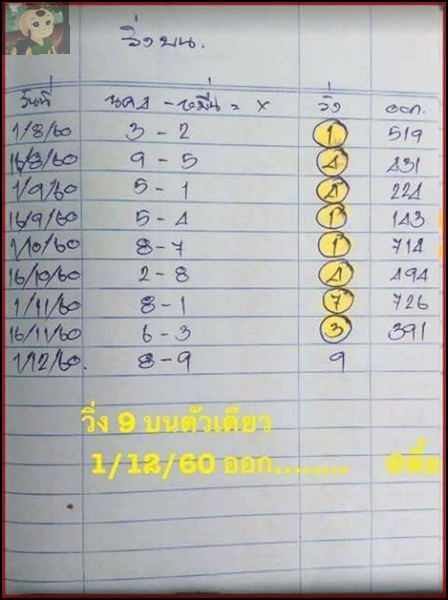 วิ่งบน.
วันที่ นคร - หมื่น = x วิ่ง ออก.
1/8/60 3 - 2 1 519
16/8/60 9 - 5 4 431
1/9/60 5 - 1 4 224
16/9/60 5 - 4 1 143
1/10/60 8 - 7 1 714
16/10/60 2 - 8 4 494
1/11/60 8 - 1 7 726
16/11/60 6 - 3 3 391
1/12/60. 8 - 9 9
วิ่ง 9 บนตัวเดียว
1/12/60 ออก........ @ตื้อ